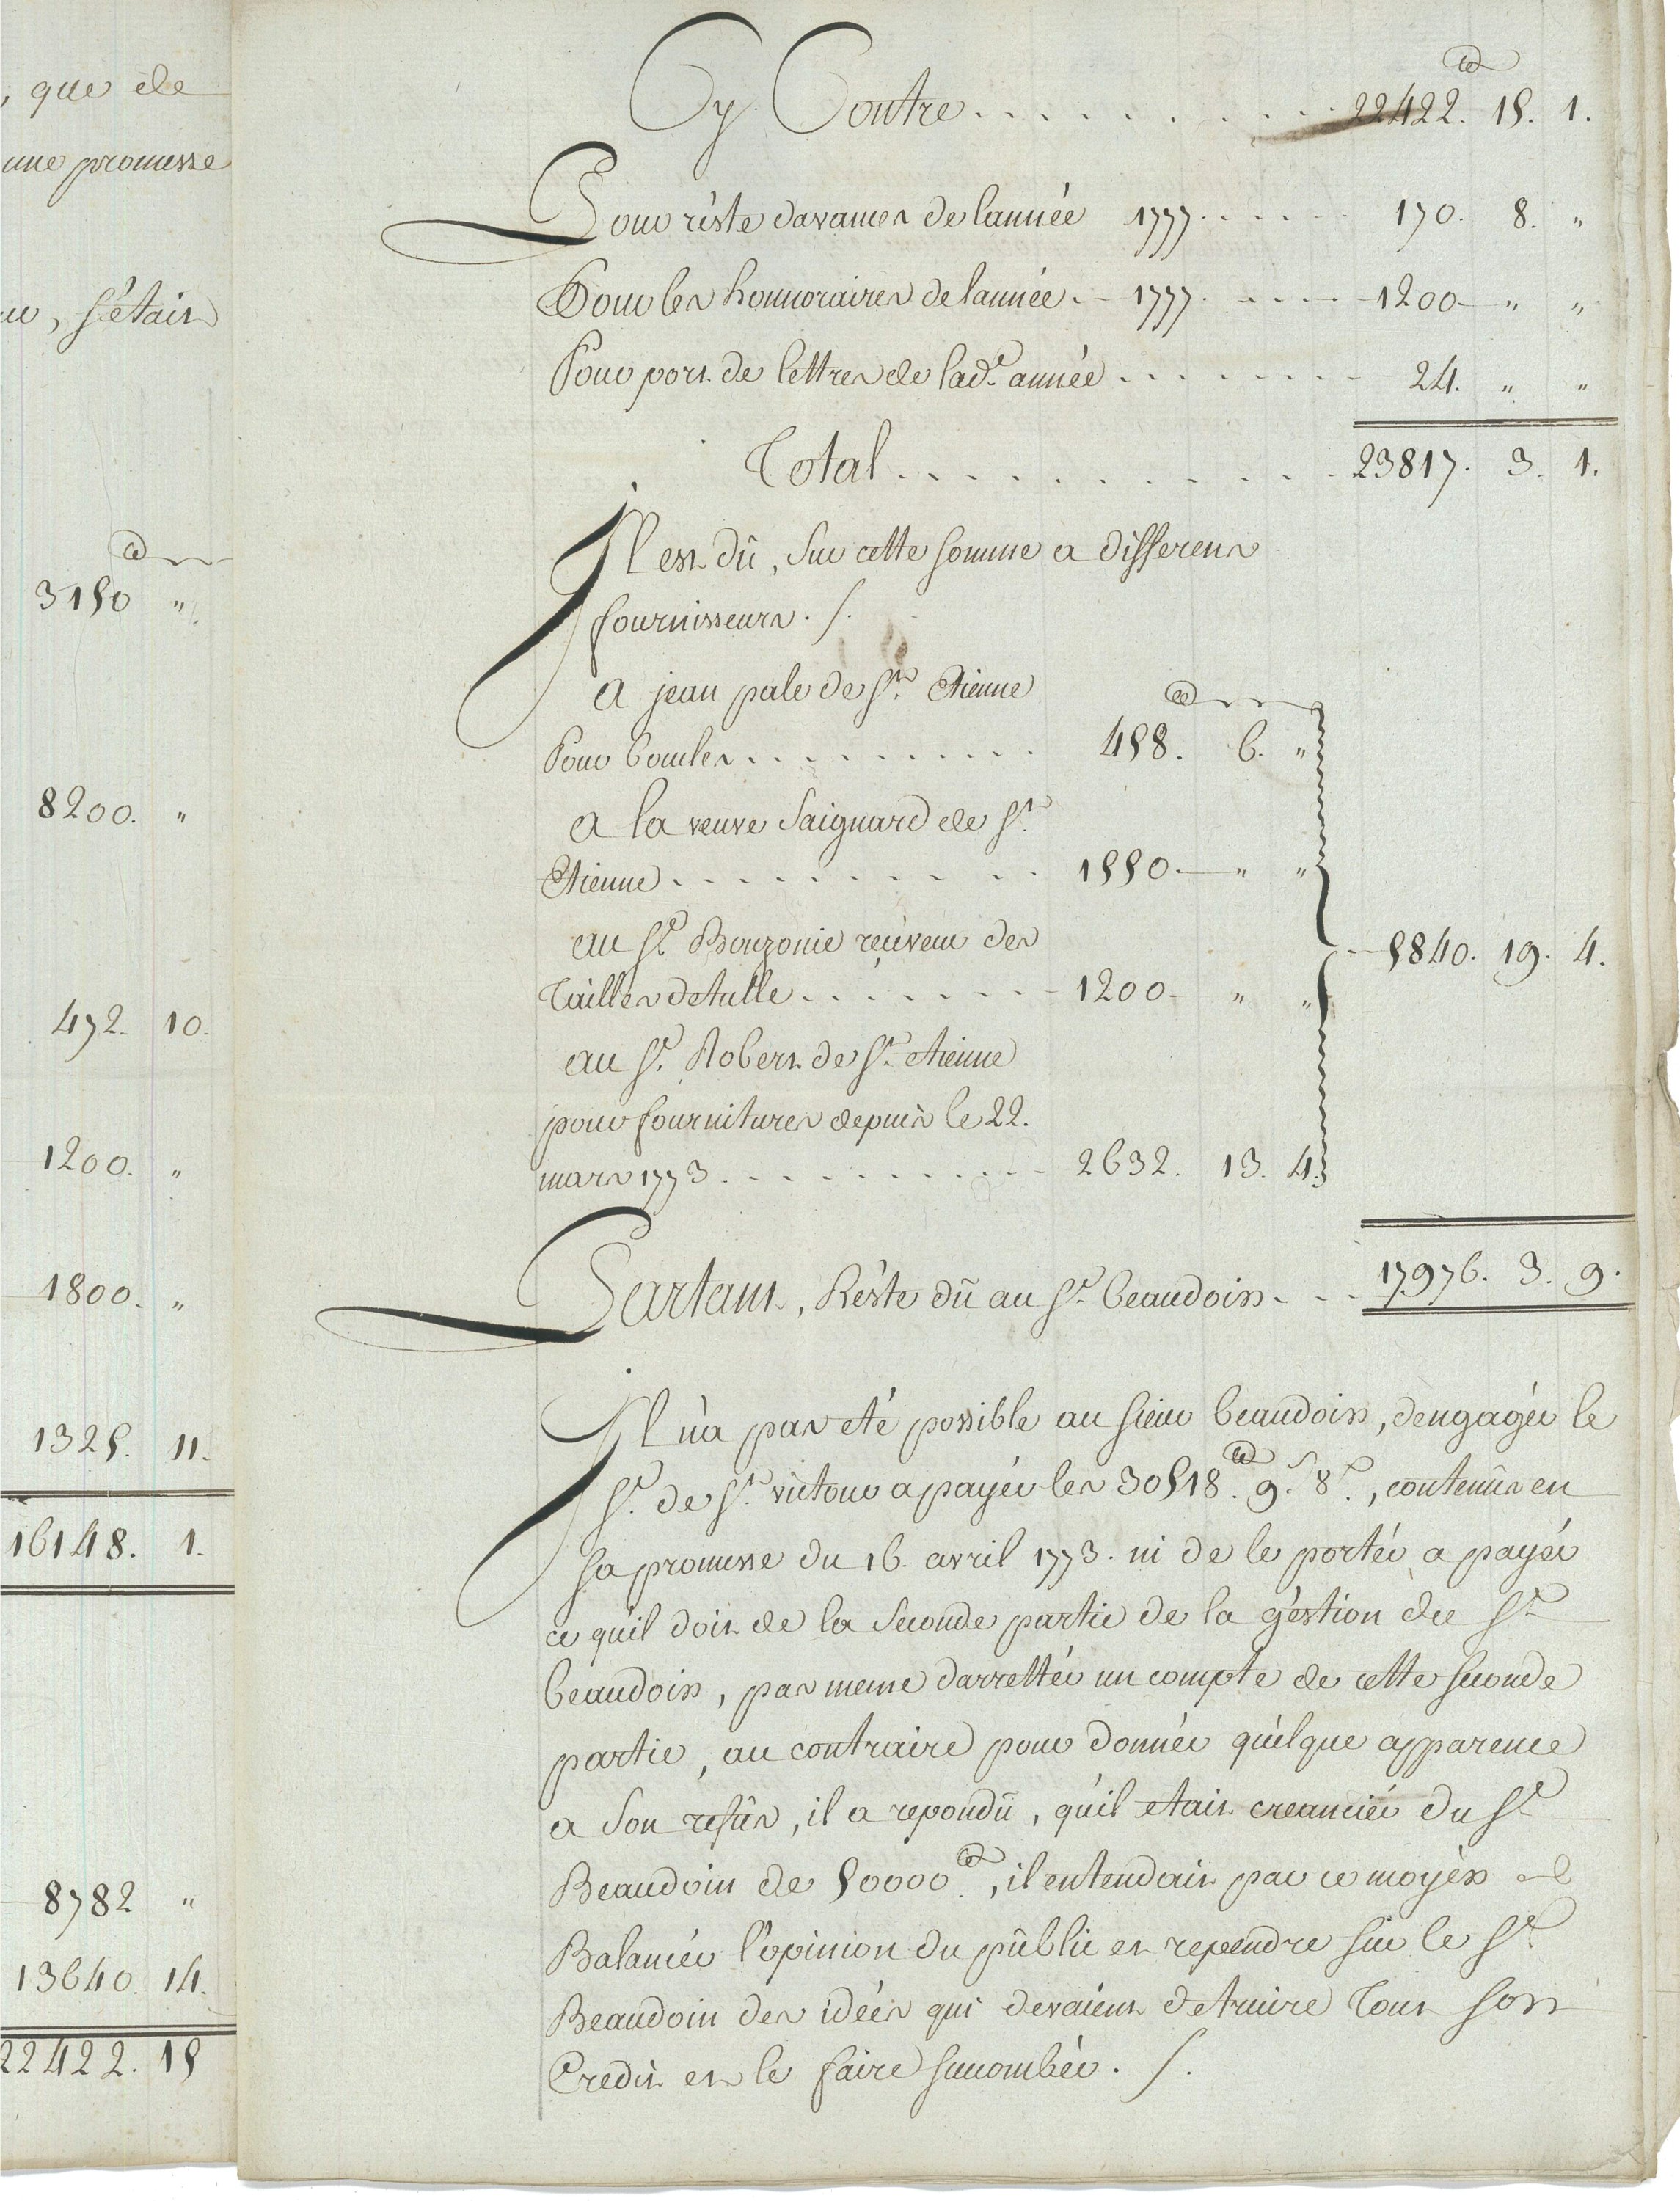 , que de
une promesse
s'étair
3150 "
8200. "
472. 10.
1200. "
1800. "
1325. 11.
16148. 1.
8782 "
13640. 14.
22422. 15
Cy Contre . . . . . . . . . 22422. 15. 1.
Pour réste davances de lannée 1777. . . . . . 170. 8. "
Pour les honnoraires de lannée. - 1777. . . . . 1200 - " "
Pour port de lettres de lad.e année . . . . . . . . 24. " "
Total . . . . . . . . . . 23817. 3. 1.
Il est dû, sur cette somme a differens
fournisseurs. /.
a jean pale de St. Etienne
Pour boucles . . . . . . . . . 458. 6. "
a la veuve Saignard de St.
Etienne . . . . . . . . . . 1550. — " "
au Sr. Bouzonie recéveur des
Tailles de tulle . . . . . . . 1200 - " "
5840. 19. 4.
au Sr. Robert de St. etienne
pour fournitures depuis le 22.
mars 1773 . . . . . . . . . . 2632. 13. 4.
Partant, Réste dû au Sr. beaudoin. . . 17976. 3. 9.
Il n'a pas eté possible au sieur beaudoin, dengagér le
Sr. de St. victour a payér les 30518.tt 9.s 8.d, contenûes en
sa promesse du 16. avril 1773. ni de le portér a payér
ce qu'il doit de la seconde partie de la géstion du Sr.
beaudoin, pas meme darrettér un compte de cette seconde
partie, au contraire pour donnér quélque apparence
a son refûs, il a repondû, qu'il etait creanciér du Sr.
Beaudoin de 50000.tt, il entendait par ce moyén
Balancér l'opinion du pûblic et rependre sur le Sr.
Beaudoin des idées qui devaient detruire Tout son
Credit et le faire succombér. /.